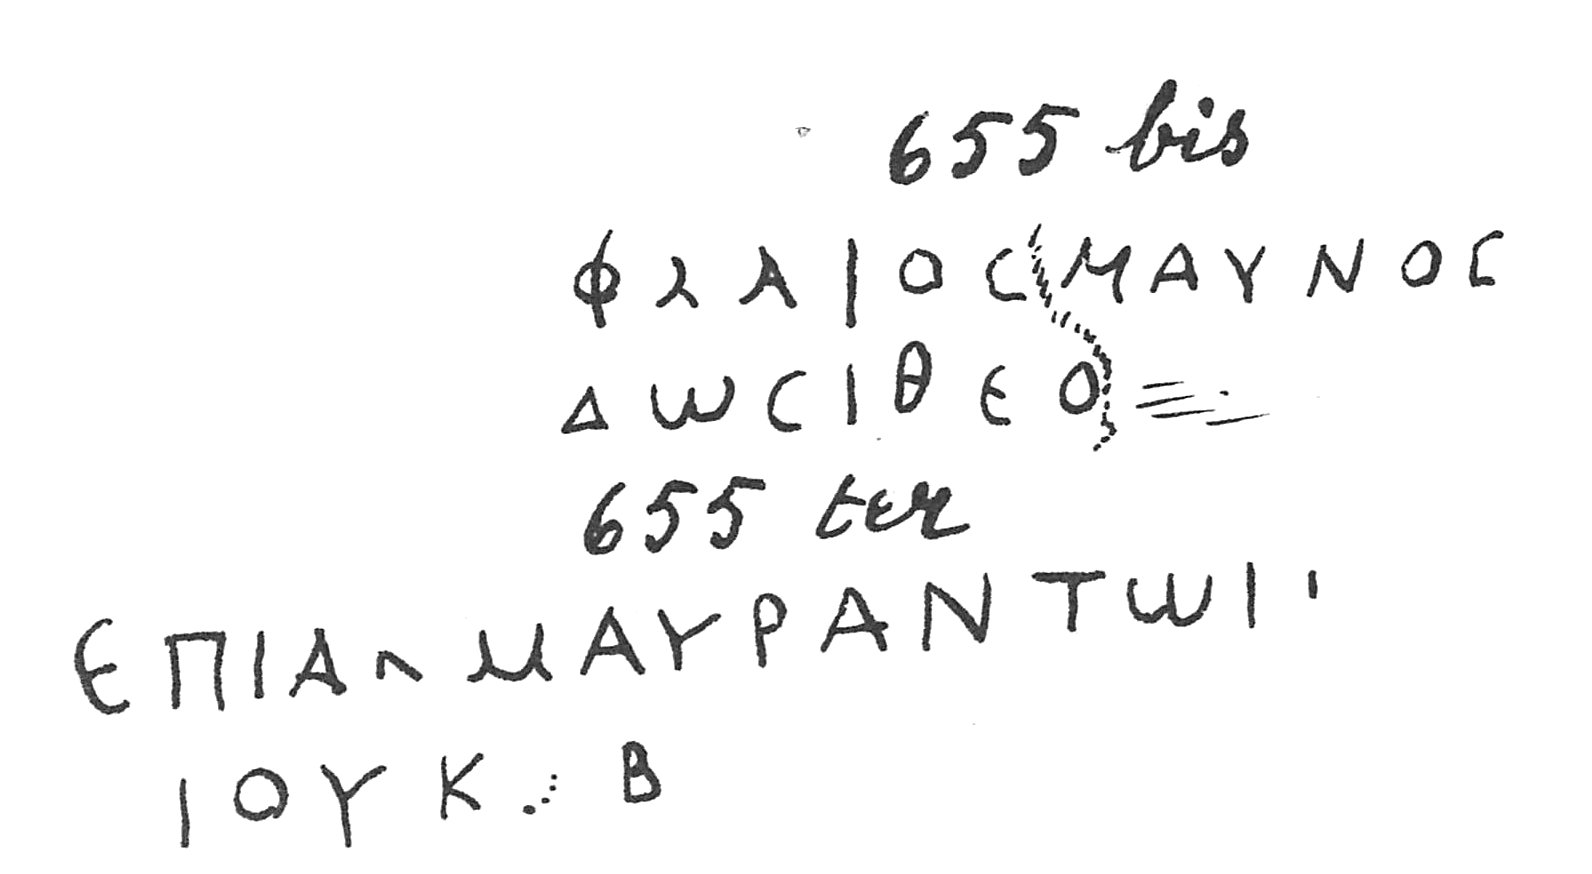 655 bis
ΦΛΑΙΟϹΜΑΥΝΟϹ
ΔωϹΙΘΕΟ
655 ter
ЄΠΙΑΛΜΑΥΡΑΝΤωΙ
ΙΟΥΚ Β